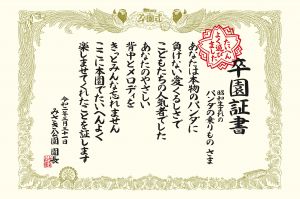 卒園証書
昭和生まれの
パンダの乗りものさま
あなたは本物のパンダに
負けない愛くるしさで
こどもたちの人気者でした
あなたのやさしい
背中とメロディを
きっとみんな忘れません
ここに本園でたいへんよく
楽しませてくれたことを証します
園長
たいへん
よく遊び
ました